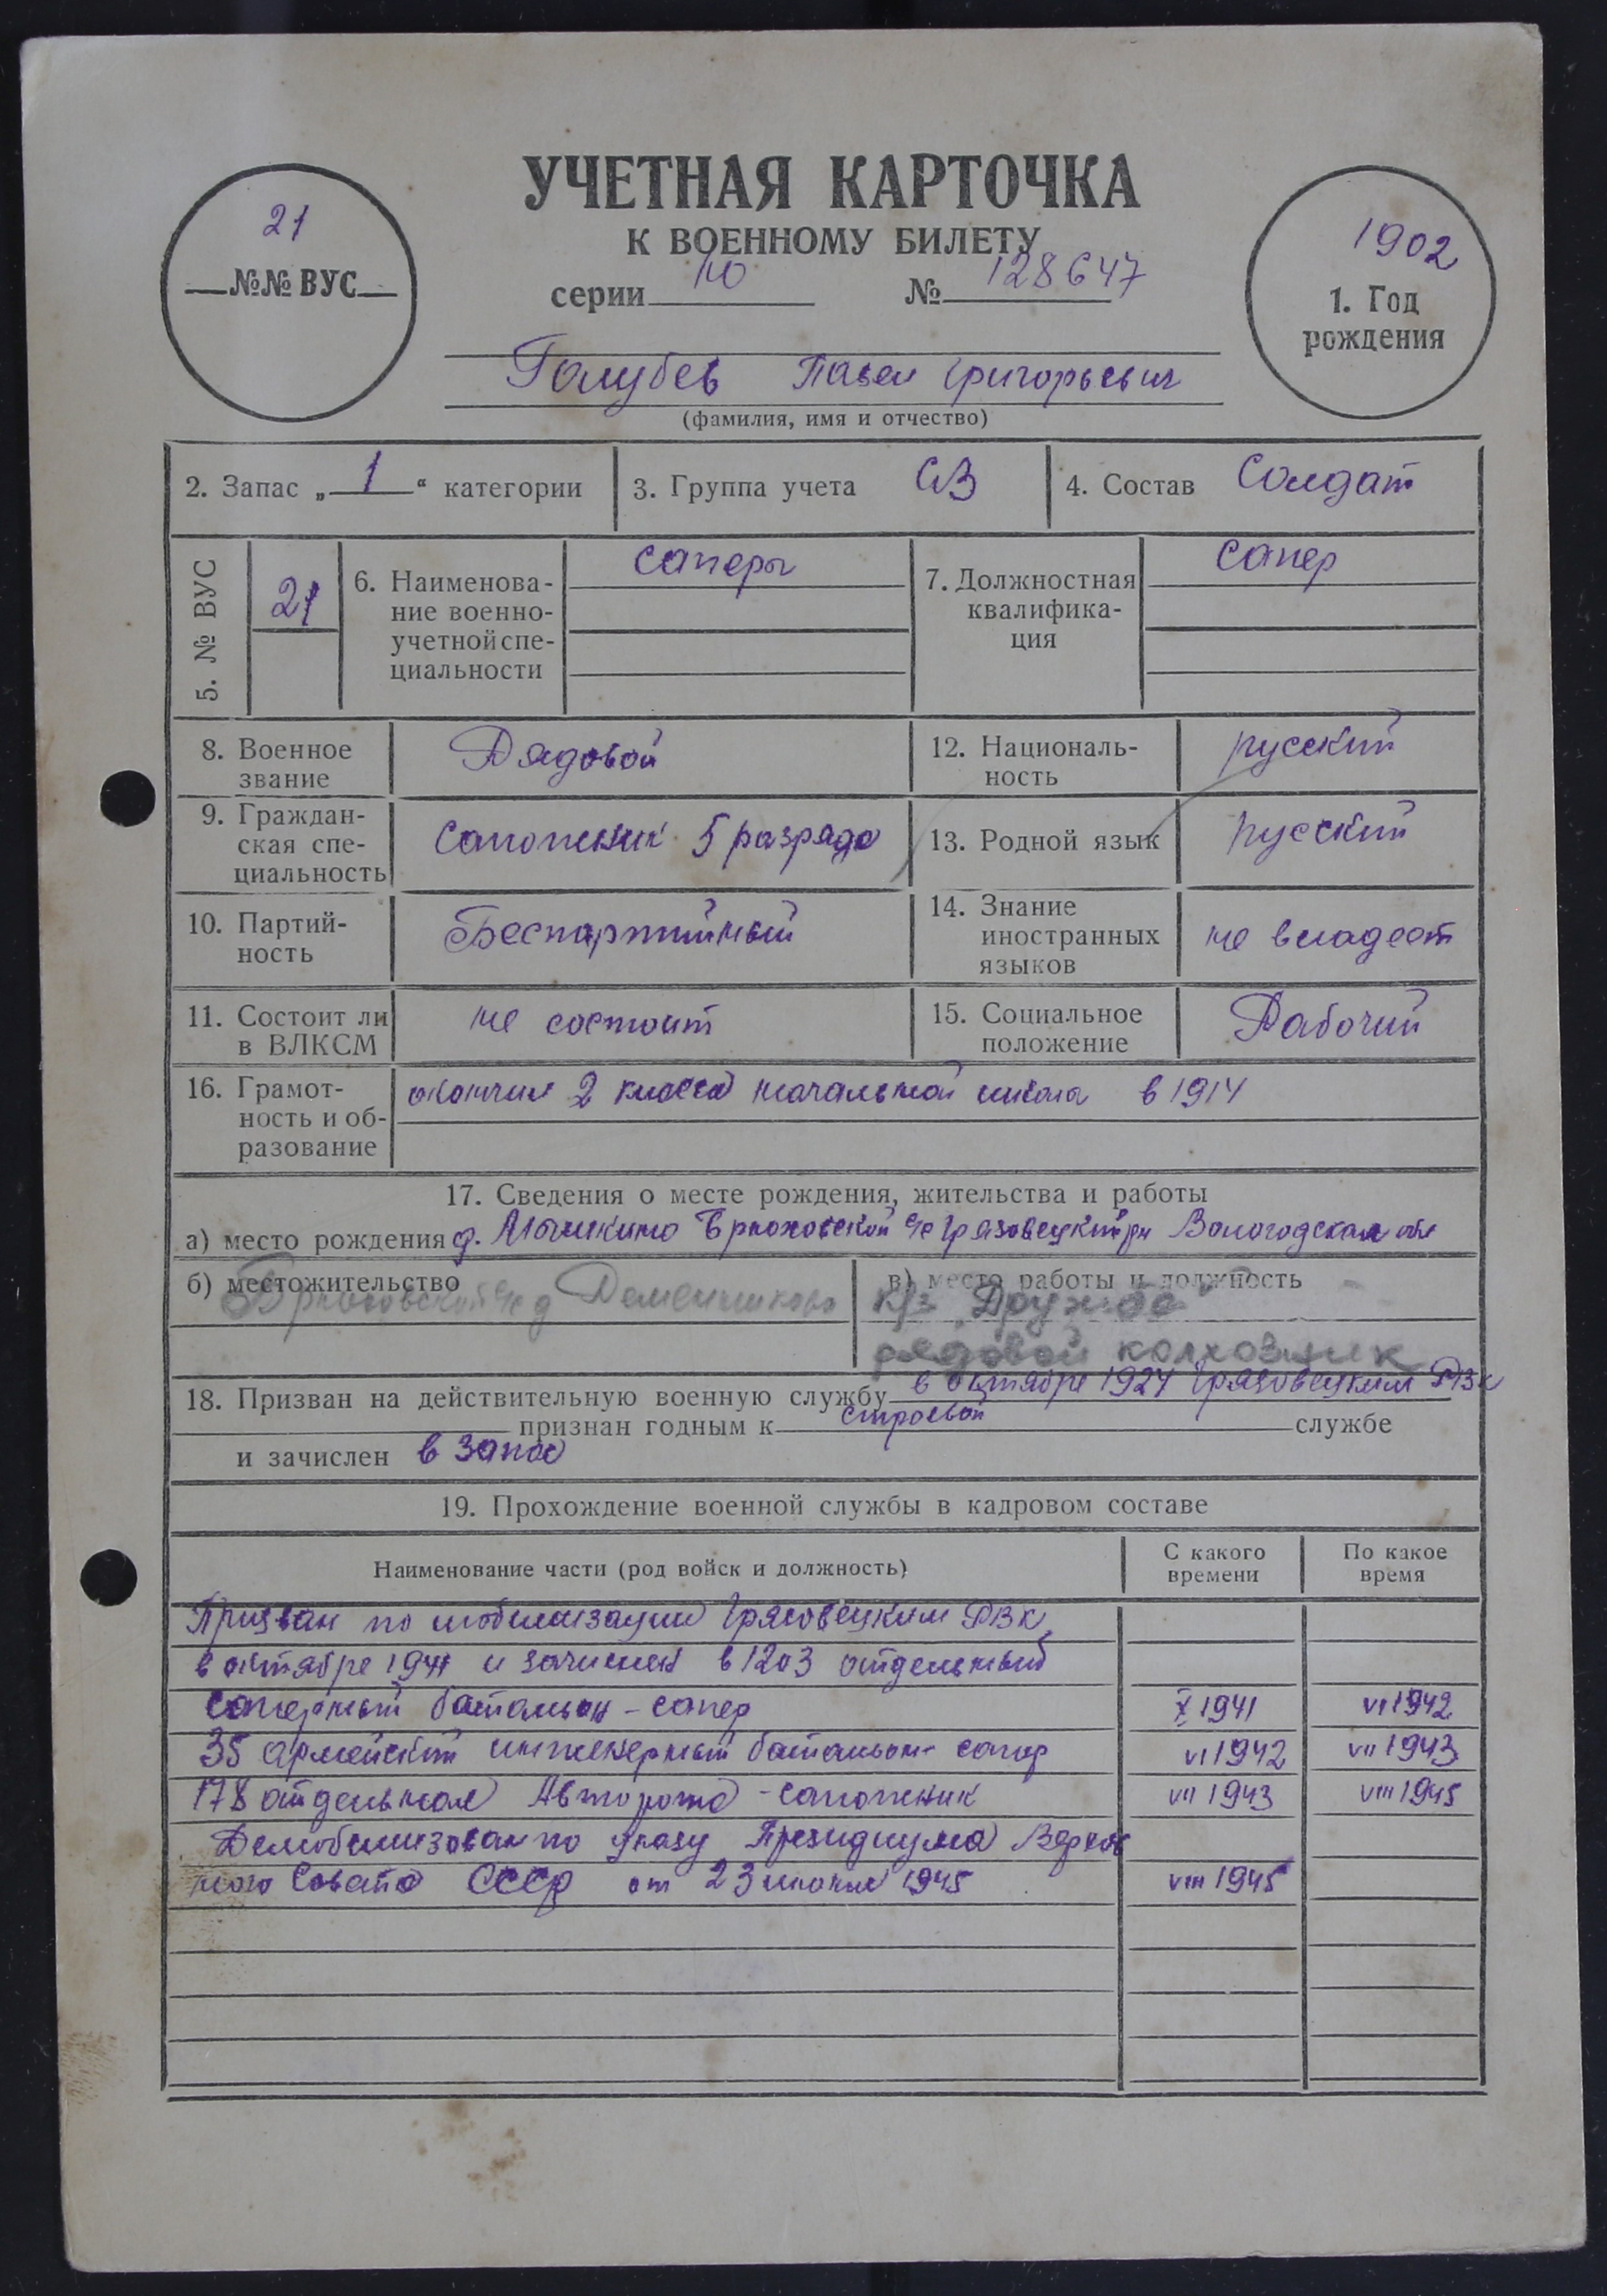 УЧЕТНАЯ КАРТОЧКА
К ВОЕННОМУ БИЛЕТУ
серии Ю № 128647
21
№№ ВУС
1902
1. Год
рождения
Голубев Павел Григорьевич
(фамилия, имя и отчество)
2. Запас „ 1 “ категории
3. Группа учета СВ
4. Состав Солдат
5. № ВУС
21
6. Наименова-
ние военно-
учетной спе-
циальности
саперы
7. Должностная
квалифика-
ция
сапер
8. Военное
звание
Рядовой
12. Националь-
ность
русский
9. Граждан-
ская спе-
циальность
Сапожник 5 разряда
13. Родной язык
русский
10. Партий-
ность
Беспартийный
14. Знание
иностранных
языков
не владеет
11. Состоит ли
в ВЛКСМ
не состоит
15. Социальное
положение
Рабочий
16. Грамот-
ность и об-
разование
окончил 2 класса начальной школы в 1914
17. Сведения о месте рождения, жительства и работы
а) место рождения д. Мышкино Брюховской с/с Грязовецкий рн Вологодская обл
б) местожительство
Брюховской с/с д Деменшиково
в) место работы и должность
к/з "Дружба"
рядовой колхозник
18. Призван на действительную военную службу в октябре 1924 Грязовецким РВК
признан годным к строевой службе
и зачислен в запас
19. Прохождение военной службы в кадровом составе
Наименование части (род войск и должность)
С какого
времени
По какое
время
Призван по мобилизации Грязовецким РВК
в октябре 1941 и зачислен в 1203 отдельный
саперный батальон - сапер X 1941 VI 1942
35 армейский инженерный батальон - сапер VI 1942 VII 1943
178 отдельная Авторота - сапожник VII 1943 VIII 1945
Демобилизован по указу Президиума Верхов
ного Совета СССР от 23 июня 1945 VIII 1945